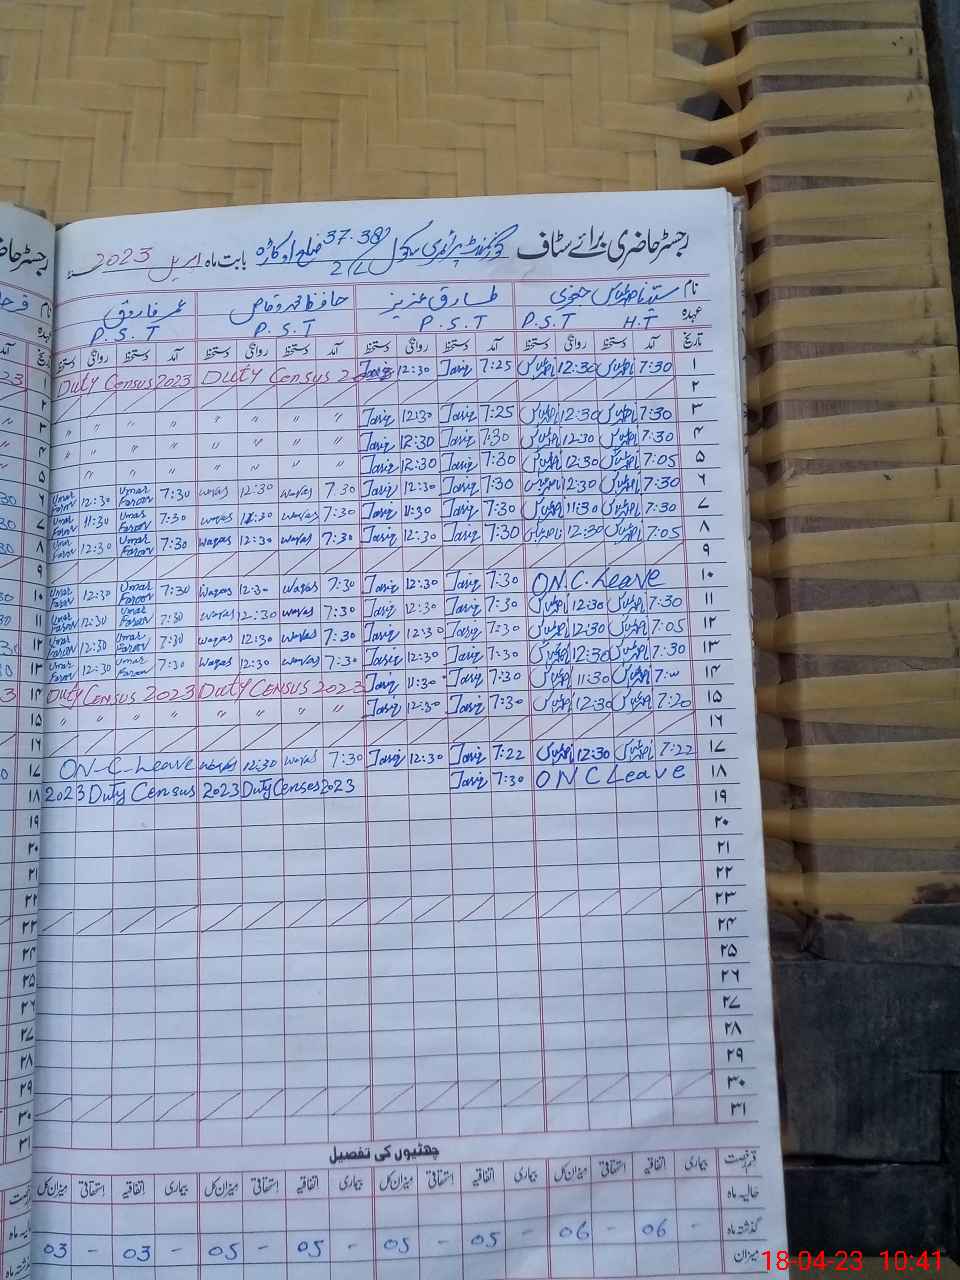 رجسٹر حاضری برائے سٹاف گورنمنٹ پرائمری سکول 37-38/2L ضلع اوکاڑہ بابت ماہ اپریل 2023ء
نام طارق عزیز حافظ محمد وقاص عمر فاروق
عہدہ H.T P.S.T P.S.T P.S.T P.S.T
تاریخ آمد دستخط روانگی دستخط آمد دستخط روانگی دستخط آمد دستخط روانگی دستخط آمد دستخط روانگی دستخط
۱ 7:30 12:30 7:25 Tariq 12:30 Tariq Duty Census 2023 Duty Census 2023
۲
۳ 7:30 12:30 7:25 Tariq 12:30 Tariq " " " " " " " "
۴ 7:30 12:30 7:30 Tariq 12:30 Tariq " " " " " " " "
۵ 7:05 12:30 7:30 Tariq 12:30 Tariq " " " " " " " "
۶ 7:30 12:30 7:30 Tariq 12:30 Tariq 7:30 Waqas 12:30 Waqas 7:30 Umar Farooq 12:30 Umar Farooq
۷ 7:30 11:30 7:30 Tariq 11:30 Tariq 7:30 Waqas 11:30 Waqas 7:30 Umar Farooq 11:30 Umar Farooq
۸ 7:05 12:30 7:30 Tariq 12:30 Tariq 7:30 Waqas 12:30 Waqas 7:30 Umar Farooq 12:30 Umar Farooq
۹
۱۰ ON.C.Leave 7:30 Tariq 12:30 Tariq 7:30 Waqas 12:30 Waqas 7:30 Umar Farooq 12:30 Umar Farooq
۱۱ 7:30 12:30 7:30 Tariq 12:30 Tariq 7:30 Waqas 12:30 Waqas 7:30 Umar Farooq 12:30 Umar Farooq
۱۲ 7:05 12:30 7:30 Tariq 12:30 Tariq 7:30 Waqas 12:30 Waqas 7:30 Umar Farooq 12:30 Umar Farooq
۱۳ 7:30 12:30 7:30 Tariq 12:30 Tariq 7:30 Waqas 12:30 Waqas 7:30 Umar Farooq 12:30 Umar Farooq
۱۴ 11:30 7:30 Tariq 11:30 Tariq Duty Census 2023 Duty Census 2023
۱۵ 7:20 12:30 7:30 Tariq 12:30 Tariq " " " " " " "
۱۶
۱۷ 7:22 12:30 7:22 Tariq 12:30 Tariq 7:30 Waqas 12:30 Waqas ON-C-Leave
۱۸ ON C Leave 7:30 Tariq 2023 Duty Census 2023 2023 Duty Census
۱۹
۲۰
۲۱
۲۲
۲۳
۲۴
۲۵
۲۶
۲۷
۲۸
۲۹
۳۰
۳۱
چھٹیوں کی تفصیل
قسم رخصت بیماری اتفاقیہ استحقاقی میزان کل بیماری اتفاقیہ استحقاقی میزان کل بیماری اتفاقیہ استحقاقی میزان کل بیماری اتفاقیہ استحقاقی میزان کل
حالیہ ماہ
گذشتہ ماہ - 06 - 06 - 05 - 05 - 05 - 05 - 03 - 03
میزان
18-04-23 10:41